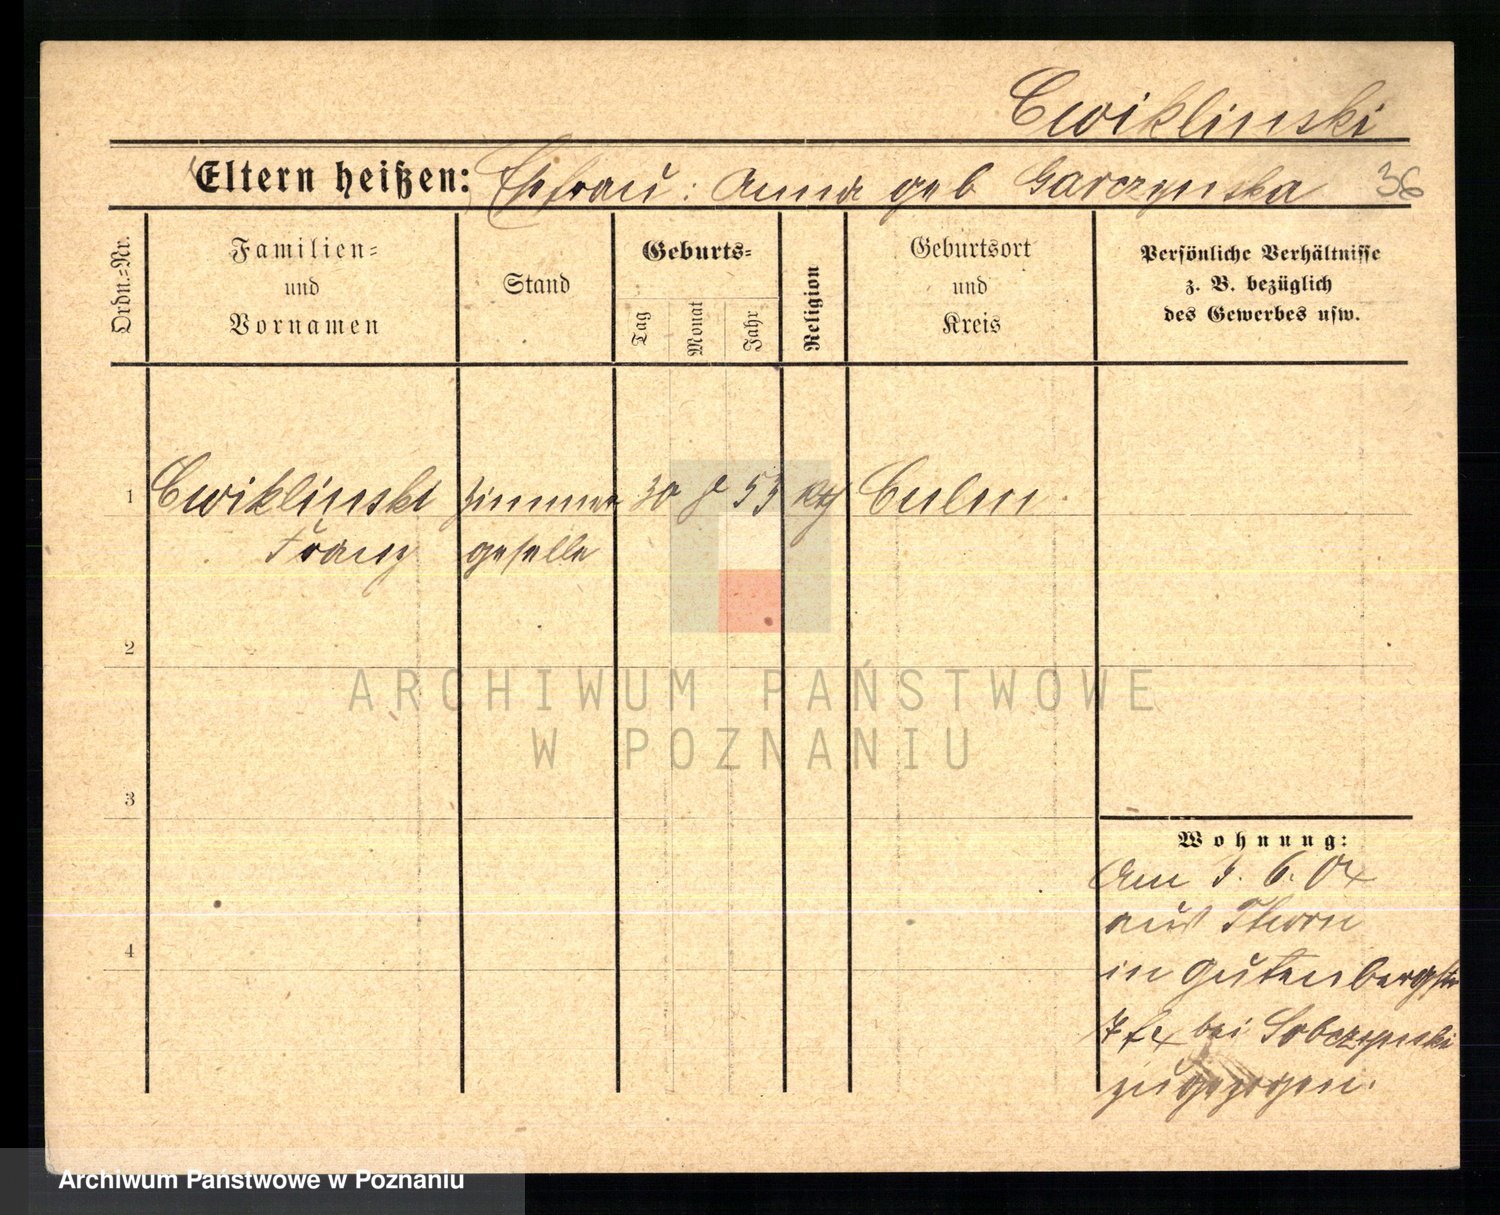 Cwiklinski
Eltern heißen: Ehefrau: Anna geb Garczynska 36
Ordn.=Nr.
Familien=
und
Vornamen
Stand
Geburts=
Tag
Monat
Jahr
Religion
Geburtsort
und
Kreis
Persönliche Verhältnisse
z. B. bezüglich
des Gewerbes usw.
1 Cwiklinski Zimmer 30 53 kth Culm.
Franz geselle
2
ARCHIWUM PAŃSTWOWE
W POZNANIU
3
Wohnung:
Am 3. 6. 04
aus Thorn
4
in Gutenbergstr
bei Sobczynski
zugezogen.
Archiwum Państwowe w Poznaniu